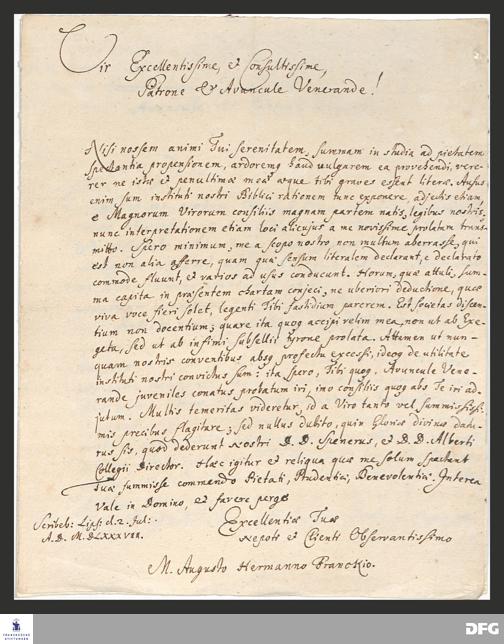 Vir Excellentissime, et Consultissime,
Patrone et Avuncule Venerande!
Nisi nossem animi Tui serenitatem, summam in studia ad pietatem
spectantia propensionem, ardoremq haud vulgarem ea provehendi, vere-
rer ne istae et penultimae meae aeque tibi graves essent literae. Ausus
enim sum instituti nostri Biblici rationem tunc exponere, adjectis etiam,
e Magnorum Virorum consiliis magnam partem natis, legibus nostris,
nunc interpretationem etiam loci alicujus a me novissime prolatam trans-
mitto. Spero minimum, me a scopo nostro non multum aberrasse, qui
est non alia offerre, quam quae sensum literalem declarant, e declarato
commode fluunt, et varios ad usus conducunt. Horum, quae attuli, Sum-
ma capita in praesentem chartam conjeci, ne uberiori deductione, quae
viva voce fieri solet, legenti Tibi fastidium parerem. Est societas discen-
tium non docentium; quare ita quoq accipi velim mea, non ut ab Exe-
geta, sed ut ab infimi subsellii tyrone prolata. Attamen ut nun-
quam nostris conventibus absq profectu excessi, ideoq de utilitate
instituti nostri convictus sum; ita spero, Tibi quoq. Avuncule Vene-
rande juveniles conatus probatum iri, imo consiliis quoq abs Te iri ad-
jutum. Multis temeritas videretur, id a Viro tanto vel summississi-
mis precibus flagitare; sed nullus dubito, quin Gloriae divinae datu-
rus sis, quod dederunt nostri D. D. Spenerus, et D. D. Alberti
Collegii Director. Haec igitur et reliqua quae me solum spectant
Tuae summisse commendo Pietati, Prudentiae, Benevolentiae. Interea
Vale in Domino, et favere perge
Excellentiae Tuae
Scribeb: Lips: d. 2. Jul:
A. D. M. DLXXXVII.
Nepoti et Clienti Observantissimo
M. Augusto Hermanno Franckio.
FRANCKESCHE
STIFTUNGEN
DFG